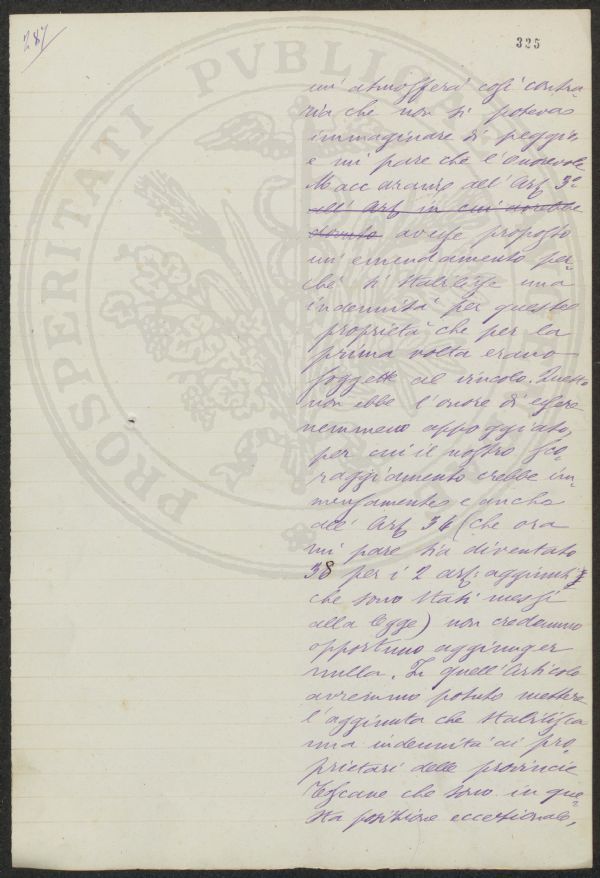 287
325
un' atmosfera così contra-
ria che non si poteva
immaginare di peggio,
e mi pare che l'Onorevole
Maccaranio all'Art. 3º
all' Art in cui avrebbe
dovuto avesse proposto
un' emendamento per-
ché si stabilisse una
indennità per queste
proprietà che per la
prima volta erano
soggette al vincolo. Questo
non ebbe l'onore di essere
nemmeno appoggiato,
per cui il nostro sco-
raggiamento crebbe im-
mensamente e anche
all' Art 36 (che ora
mi pare sia diventato
38 per i 2 art: aggiunti
che sono stati messi
alla legge) non credemmo
opportuno aggiunger
nulla. In quell'Articolo
avremmo potuto mettere
l'aggiunta che stabilisca
una indennità ai pro-
prietari delle provincie
Toscane che sono in que-
sta posizione eccezionale,
PROSPERITATI PVBLICAE